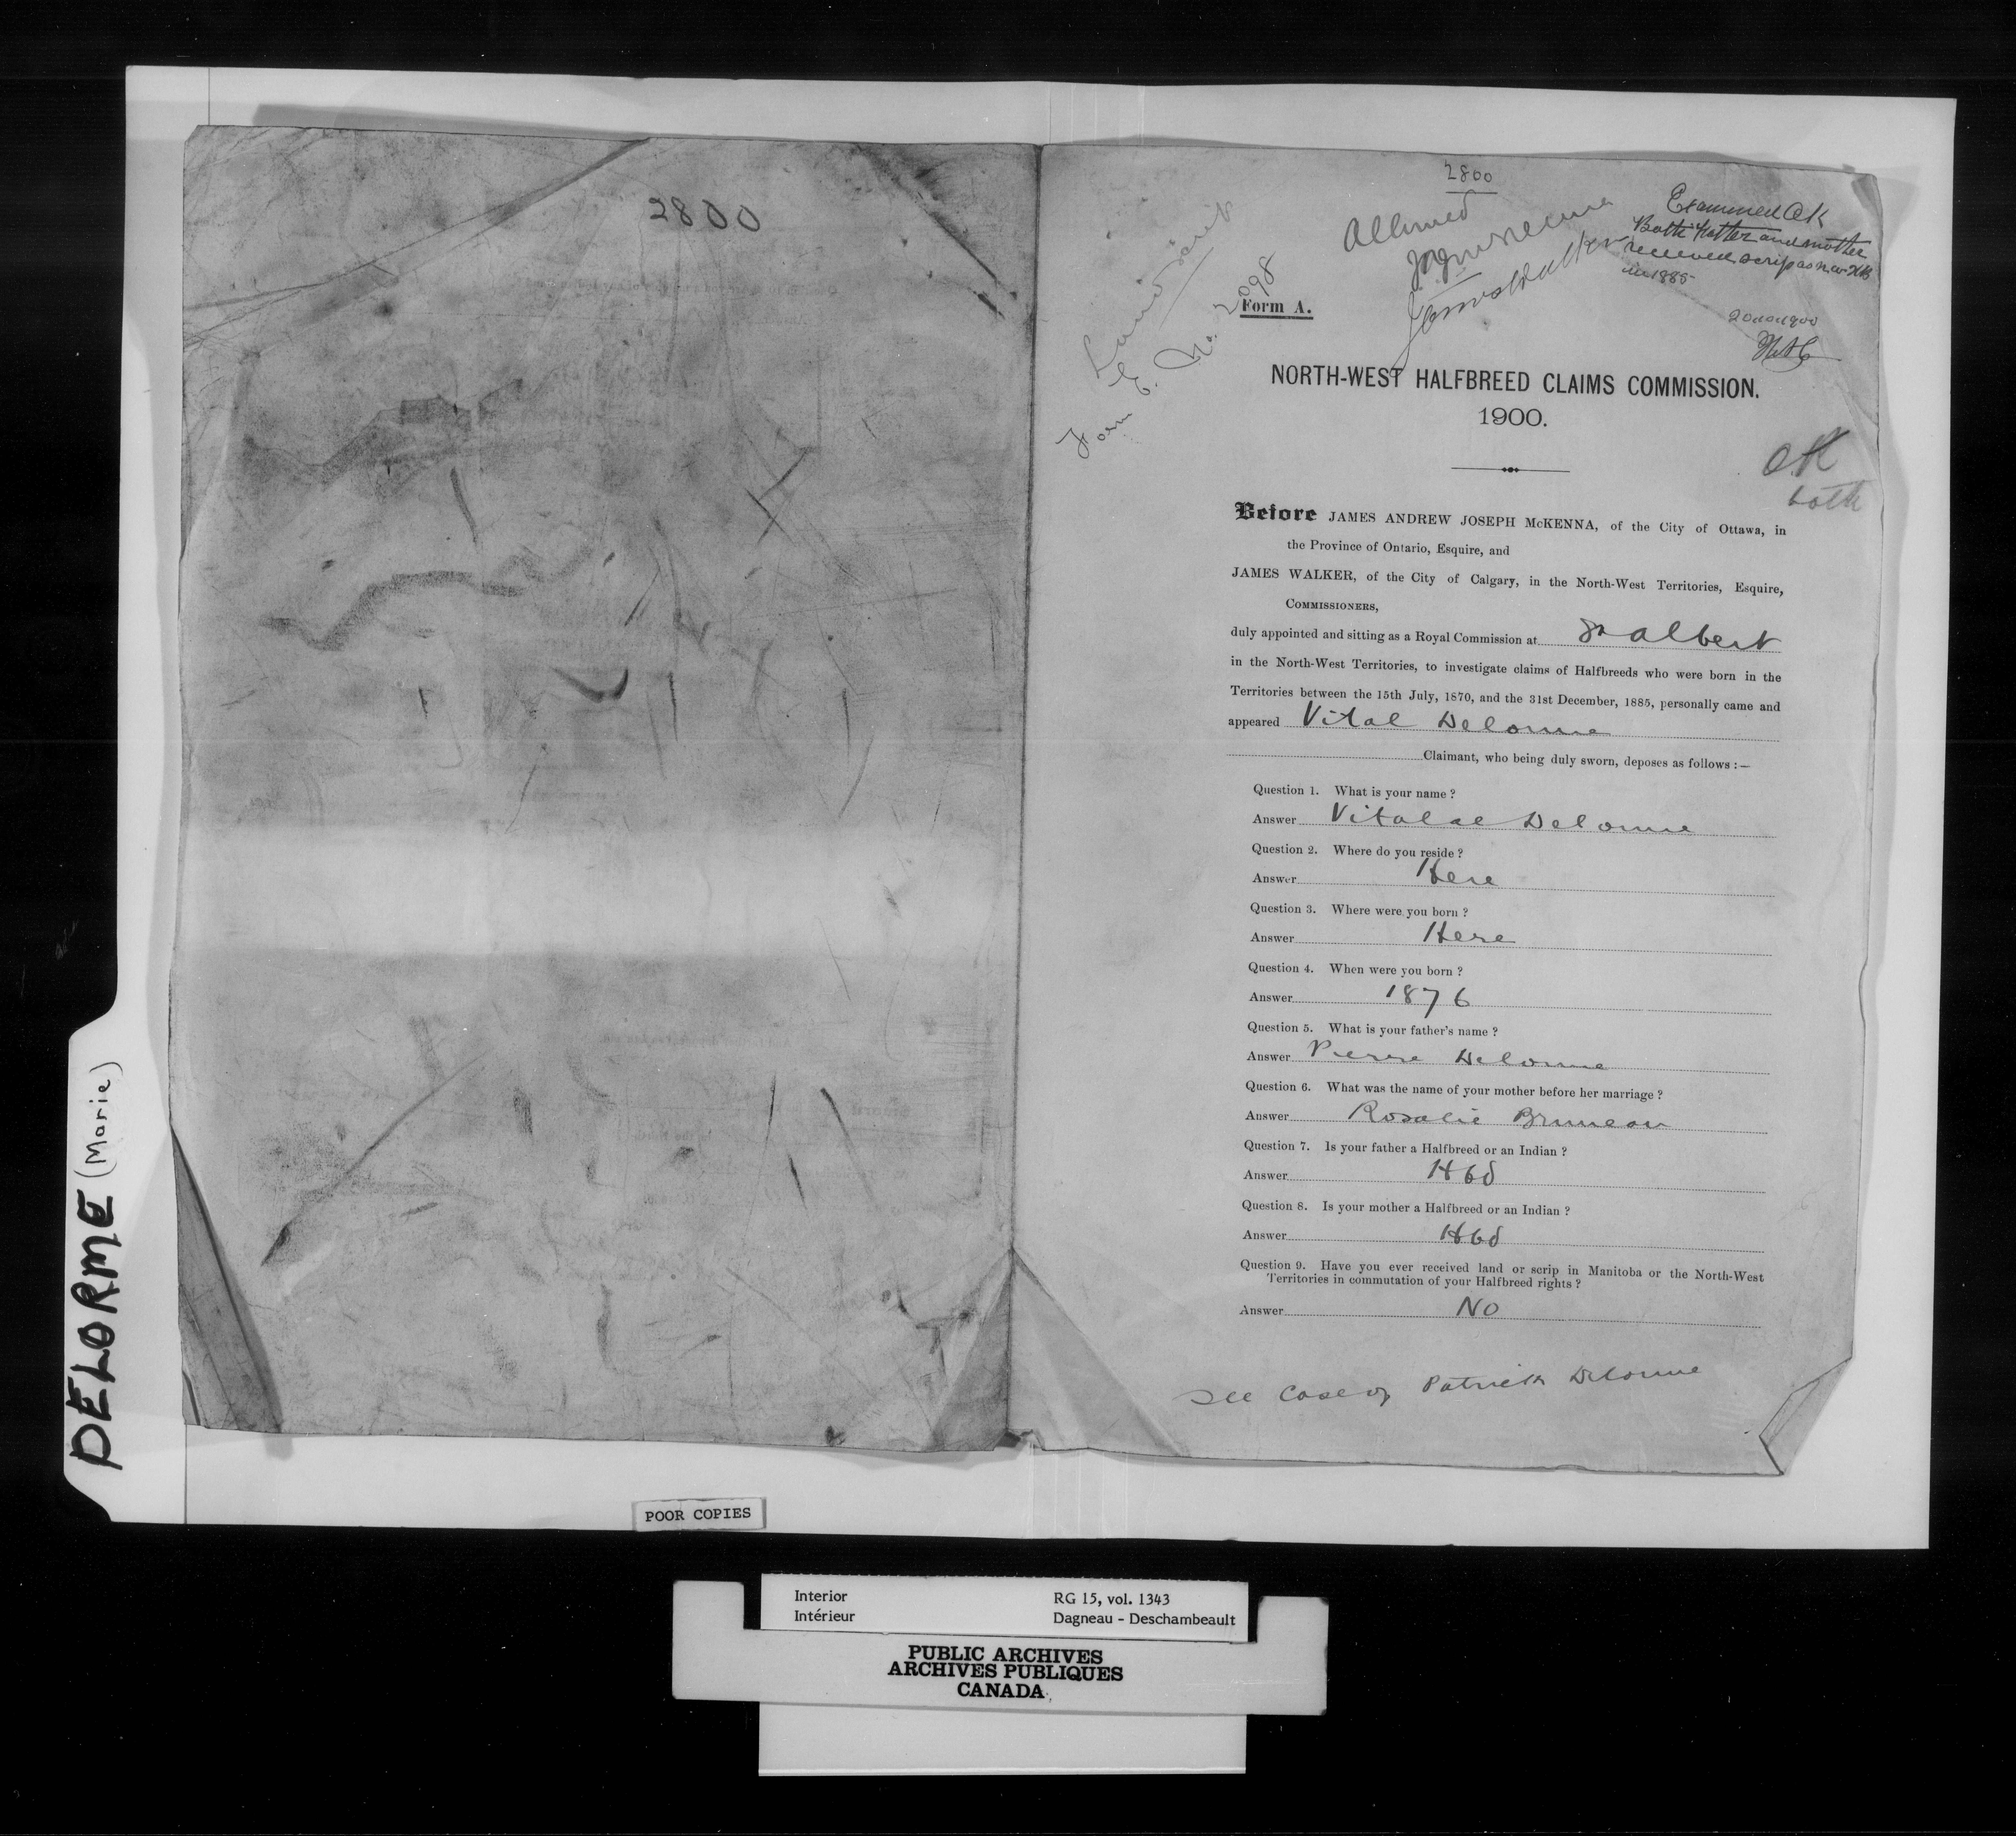 2800
2800
Allowed
James Walker
Examined OK
Both father and mother
received scrip as N.W. HB
in 1885
Land scrip
Form E. No. 2098
Form A.
NORTH-WEST HALFBREED CLAIMS COMMISSION.
1900.
OK
both
Before JAMES ANDREW JOSEPH McKENNA, of the City of Ottawa, in
the Province of Ontario, Esquire, and
JAMES WALKER, of the City of Calgary, in the North-West Territories, Esquire,
COMMISSIONERS,
duly appointed and sitting as a Royal Commission at St Albert
in the North-West Territories, to investigate claims of Halfbreeds who were born in the
Territories between the 15th July, 1870, and the 31st December, 1885, personally came and
appeared Vital Delorme
Claimant, who being duly sworn, deposes as follows :—
Question 1. What is your name ?
Answer Vitalae Delorme
Question 2. Where do you reside ?
Answer Here
Question 3. Where were you born ?
Answer Here
Question 4. When were you born ?
Answer 1876
Question 5. What is your father's name ?
Answer Pierre Delorme
Question 6. What was the name of your mother before her marriage ?
Answer Rosalie Bruneau
Question 7. Is your father a Halfbreed or an Indian ?
Answer Hbd
Question 8. Is your mother a Halfbreed or an Indian ?
Answer Hbd
Question 9. Have you ever received land or scrip in Manitoba or the North-West
Territories in commutation of your Halfbreed rights ?
Answer No
See Case of Patrick Delorme
DELORME (Marie)
POOR COPIES
Interior RG 15, vol. 1343
Intérieur Dagneau - Deschambeault
PUBLIC ARCHIVES
ARCHIVES PUBLIQUES
CANADA